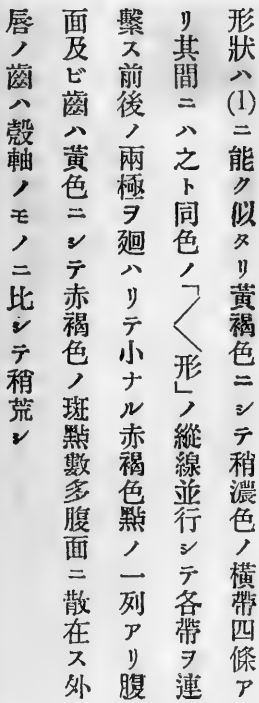 形狀ハ(1)ニ能ク似タリ黃褐色ニシテ稍濃色ノ橫帶四條ア
リ其間ニハ之ト同色ノ「〱形」ノ縱線並行シテ各帶ヲ連
繫ス前後ノ兩極ヲ廻ハリテ小ナル赤褐色點ノ一列アリ腹
面及ビ齒ハ黃色ニシテ赤褐色ノ斑點數多腹面ニ散在ス外
唇ノ齒ハ殼軸ノモノニ比シテ稍荒シ